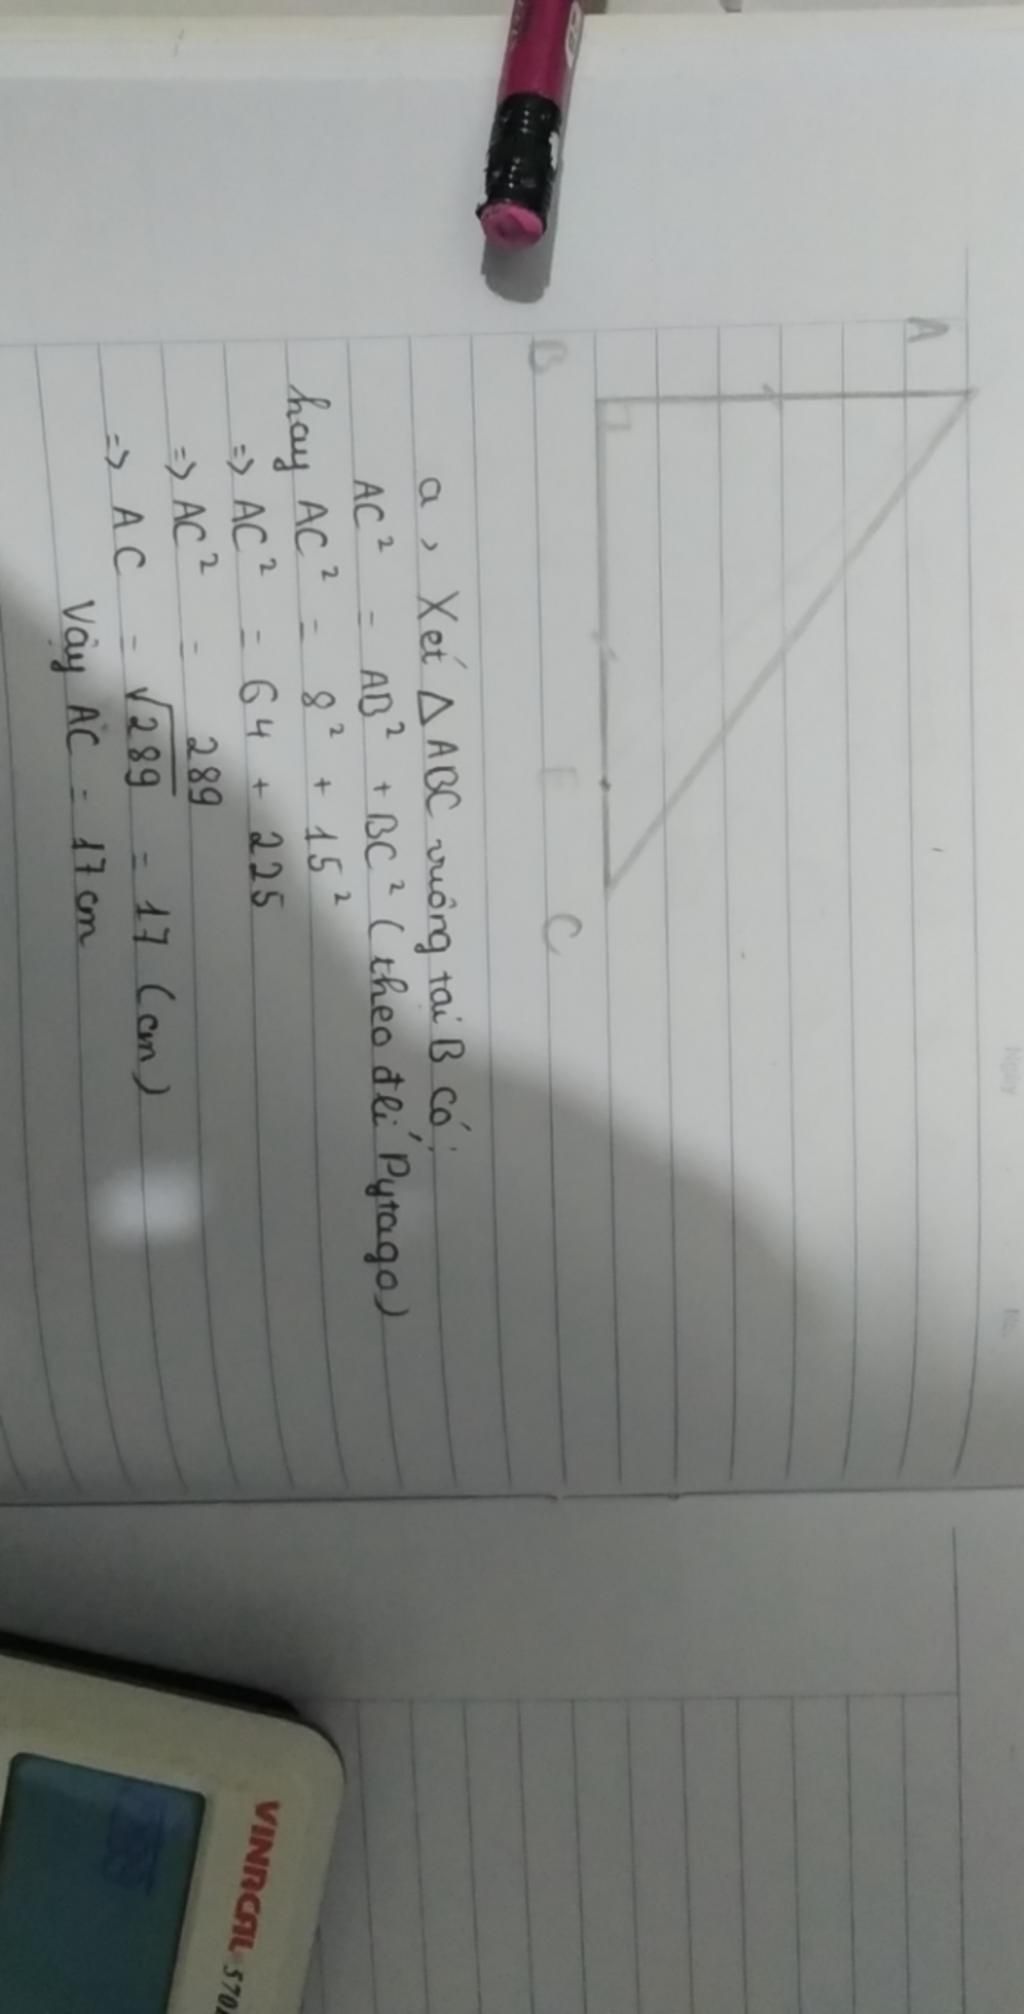 Ngày
No.
A
B
E
C
a, Xét △ABC vuông tại B có:
AC² = AB² + BC² (theo đlí Pytago)
hay AC² = 8² + 15²
=> AC² = 64 + 225
=> AC² = 289
=> AC = √289 = 17 (cm)
Vậy AC = 17 cm
VINACAL 570